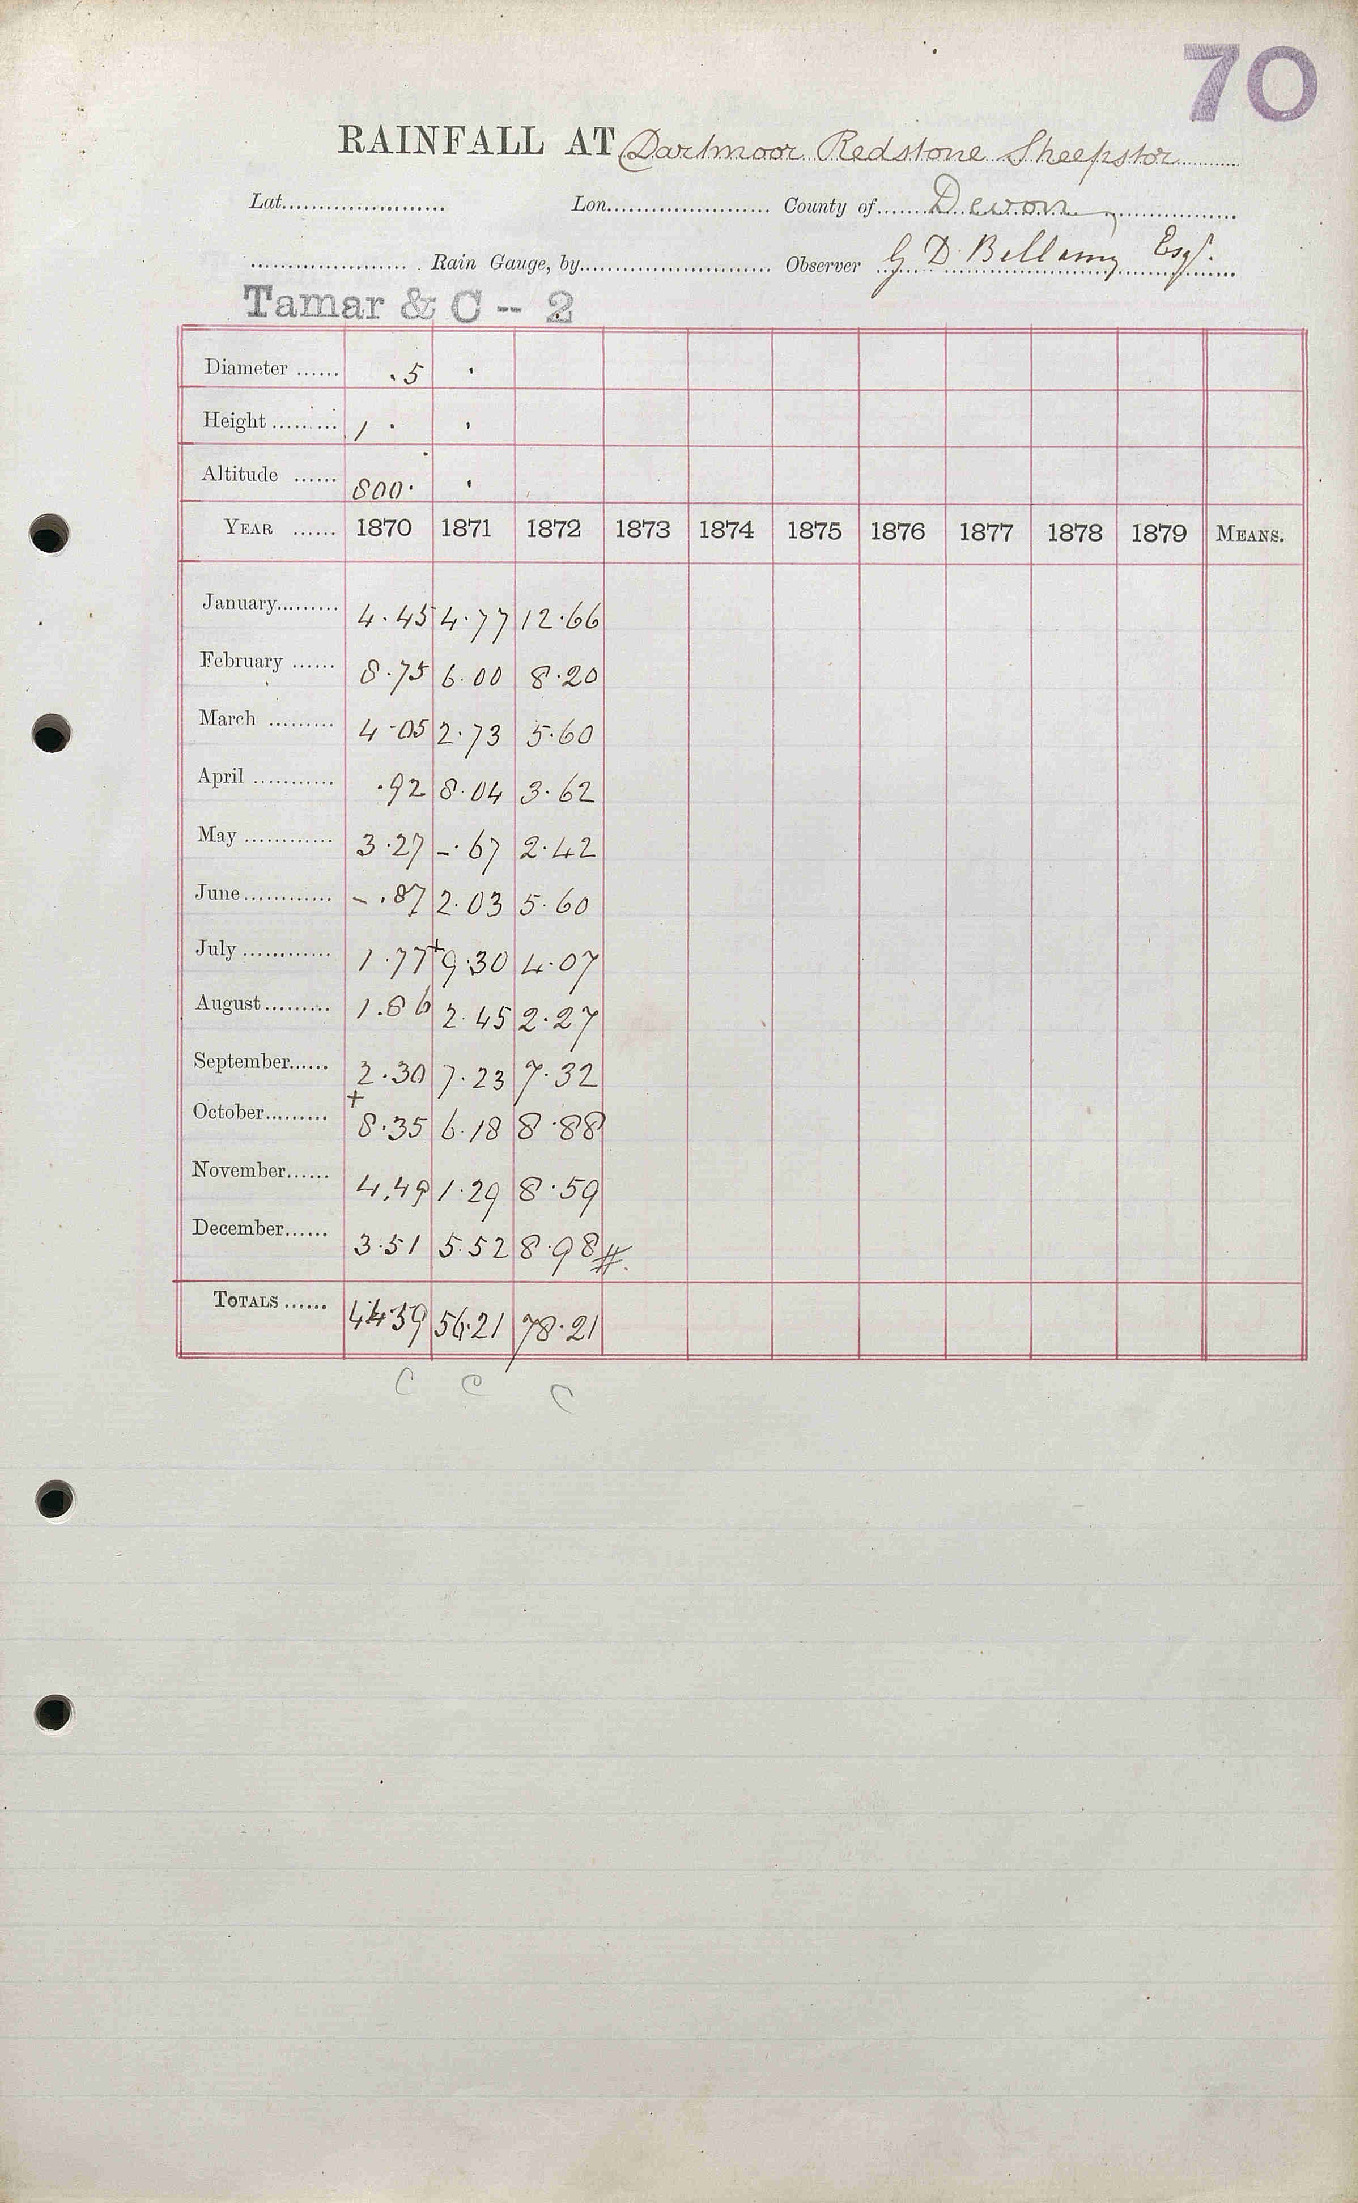 70
RAINFALL AT Dartmoor Redstone Sheepstor
Lat. Lon. County of Devon
Rain Gauge, by Observer G D Bellamy Esqr.
Tamar & C -- 2
Diameter ...... .5 .
Height ......... 1 . .
Altitude ...... 800. .
YEAR ...... 1870 1871 1872 1873 1874 1875 1876 1877 1878 1879 MEANS.
January......... 4.45 4.77 12.66
February ...... 8.75 6.00 8.20
March ......... 4.05 2.73 5.60
April ............ .92 8.04 3.62
May ............ 3.27 -.67 2.42
June............ -.87 2.03 5.60
July ............ 1.77 +9.30 4.07
August......... 1.86 2.45 2.27
September...... 2.30 7.23 7.32
October......... +8.35 6.18 8.88
November...... 4.49 1.29 8.59
December...... 3.51 5.52 8.98 #.
TOTALS ...... 44.59 56.21 78.21
C C C